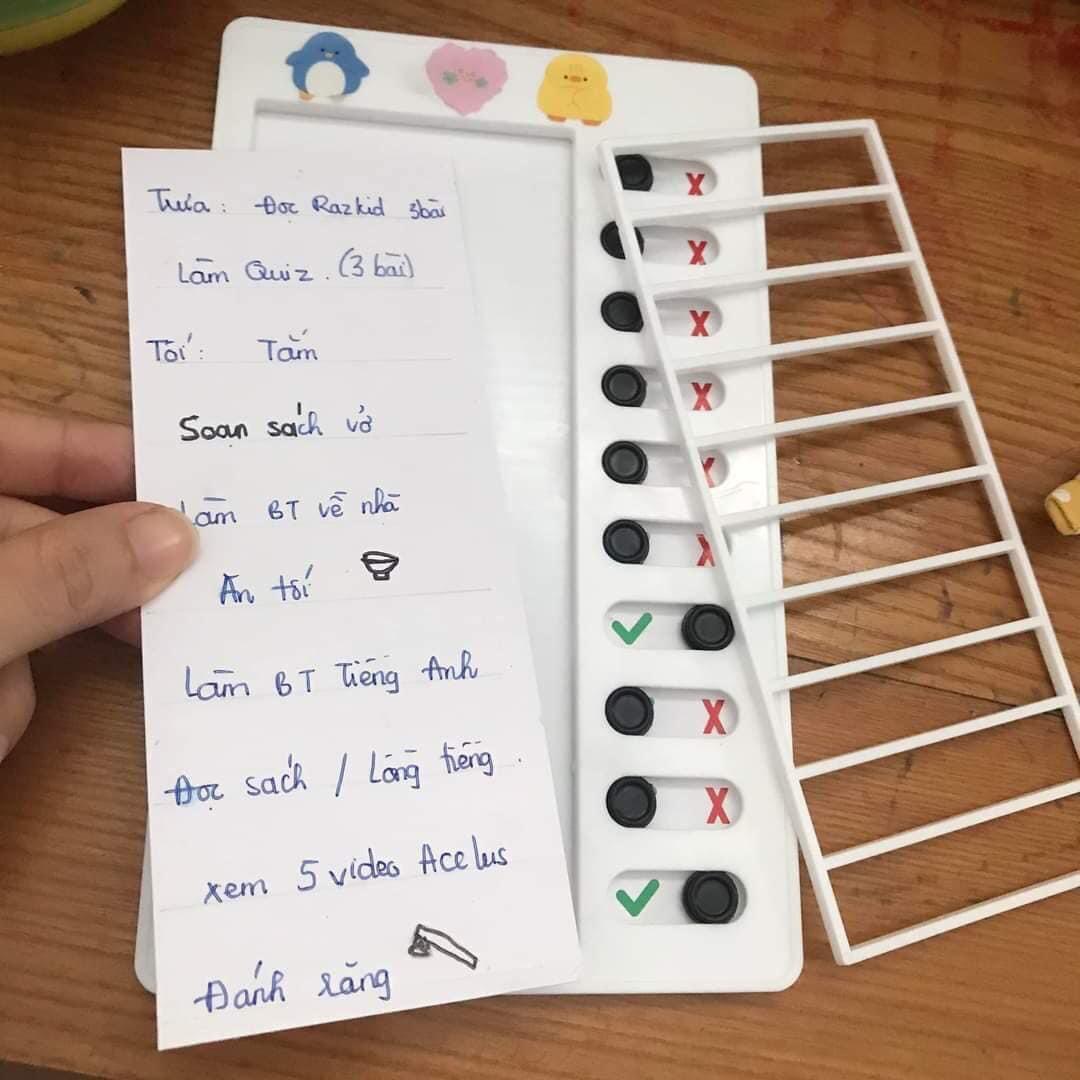 Trưa: Đọc Razkid 3bài
Làm Quiz. (3 bài)
Tối: Tắm
Soạn sách vở
Làm BT về nhà
Ăn tối
Làm BT Tiếng Anh
Đọc sách / Lồng tiếng.
xem 5 video Acelus
Đánh răng
X
X
X
X
X
X
✓
X
X
✓